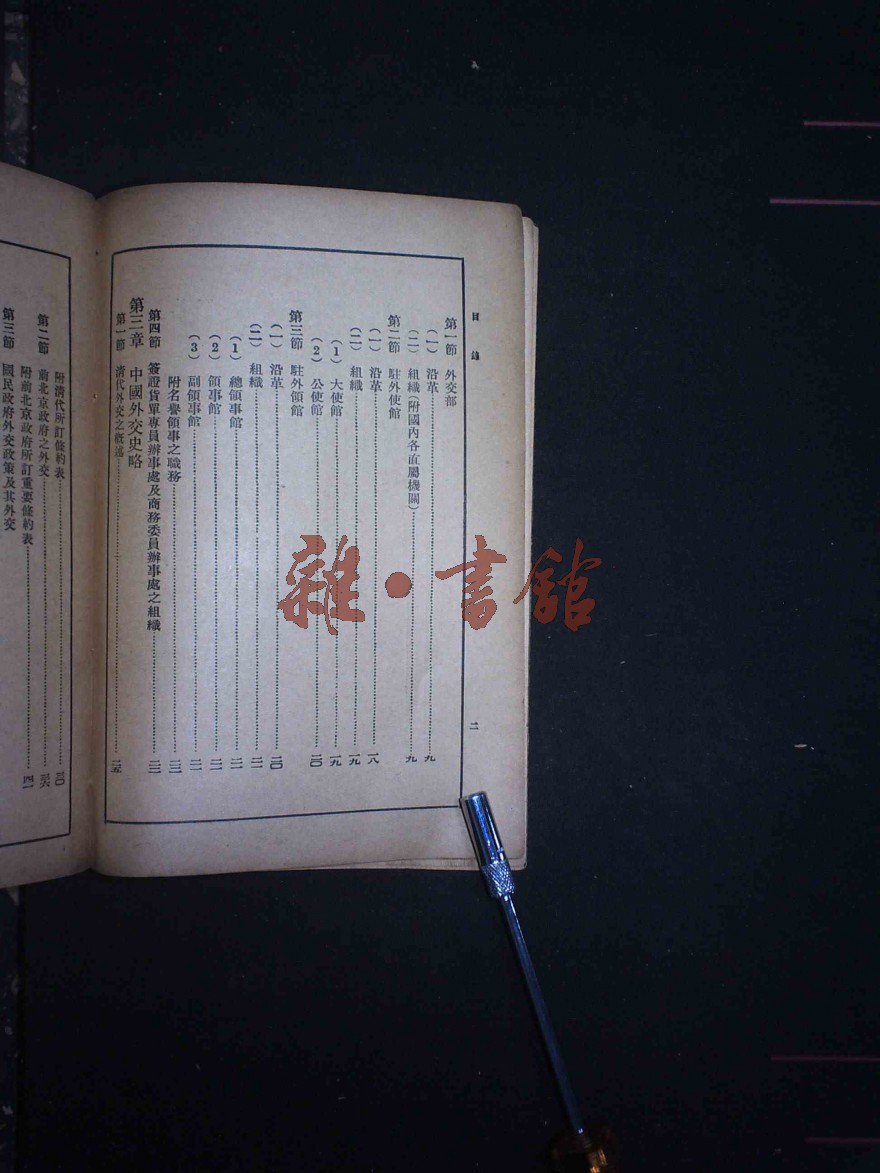 目錄
第一節 外交部
(一) 沿革……九
(二) 組織(附國內各直屬機關)……九
第二節 駐外使館
(一) 沿革……一八
(二) 組織……一九
(1) 大使館……一九
(2) 公使館……二〇
第三節 駐外領館
(一) 沿革……二〇
(二) 組織……二一
(1) 總領事館……二一
(2) 領事館……二一
(3) 副領事館……二一
附名譽領事之職務……二二
第四節 簽證貨單專員辦事處及商務委員辦事處之組織……二三
第三章 中國外交史略
第一節 清代外交之概述……二五
二
附清代所訂條約表……三〇
第二節 前北京政府之外交……三六
附前北京政府所訂重要條約表……四一
第三節 國民政府外交政策及其外交
雜·書館